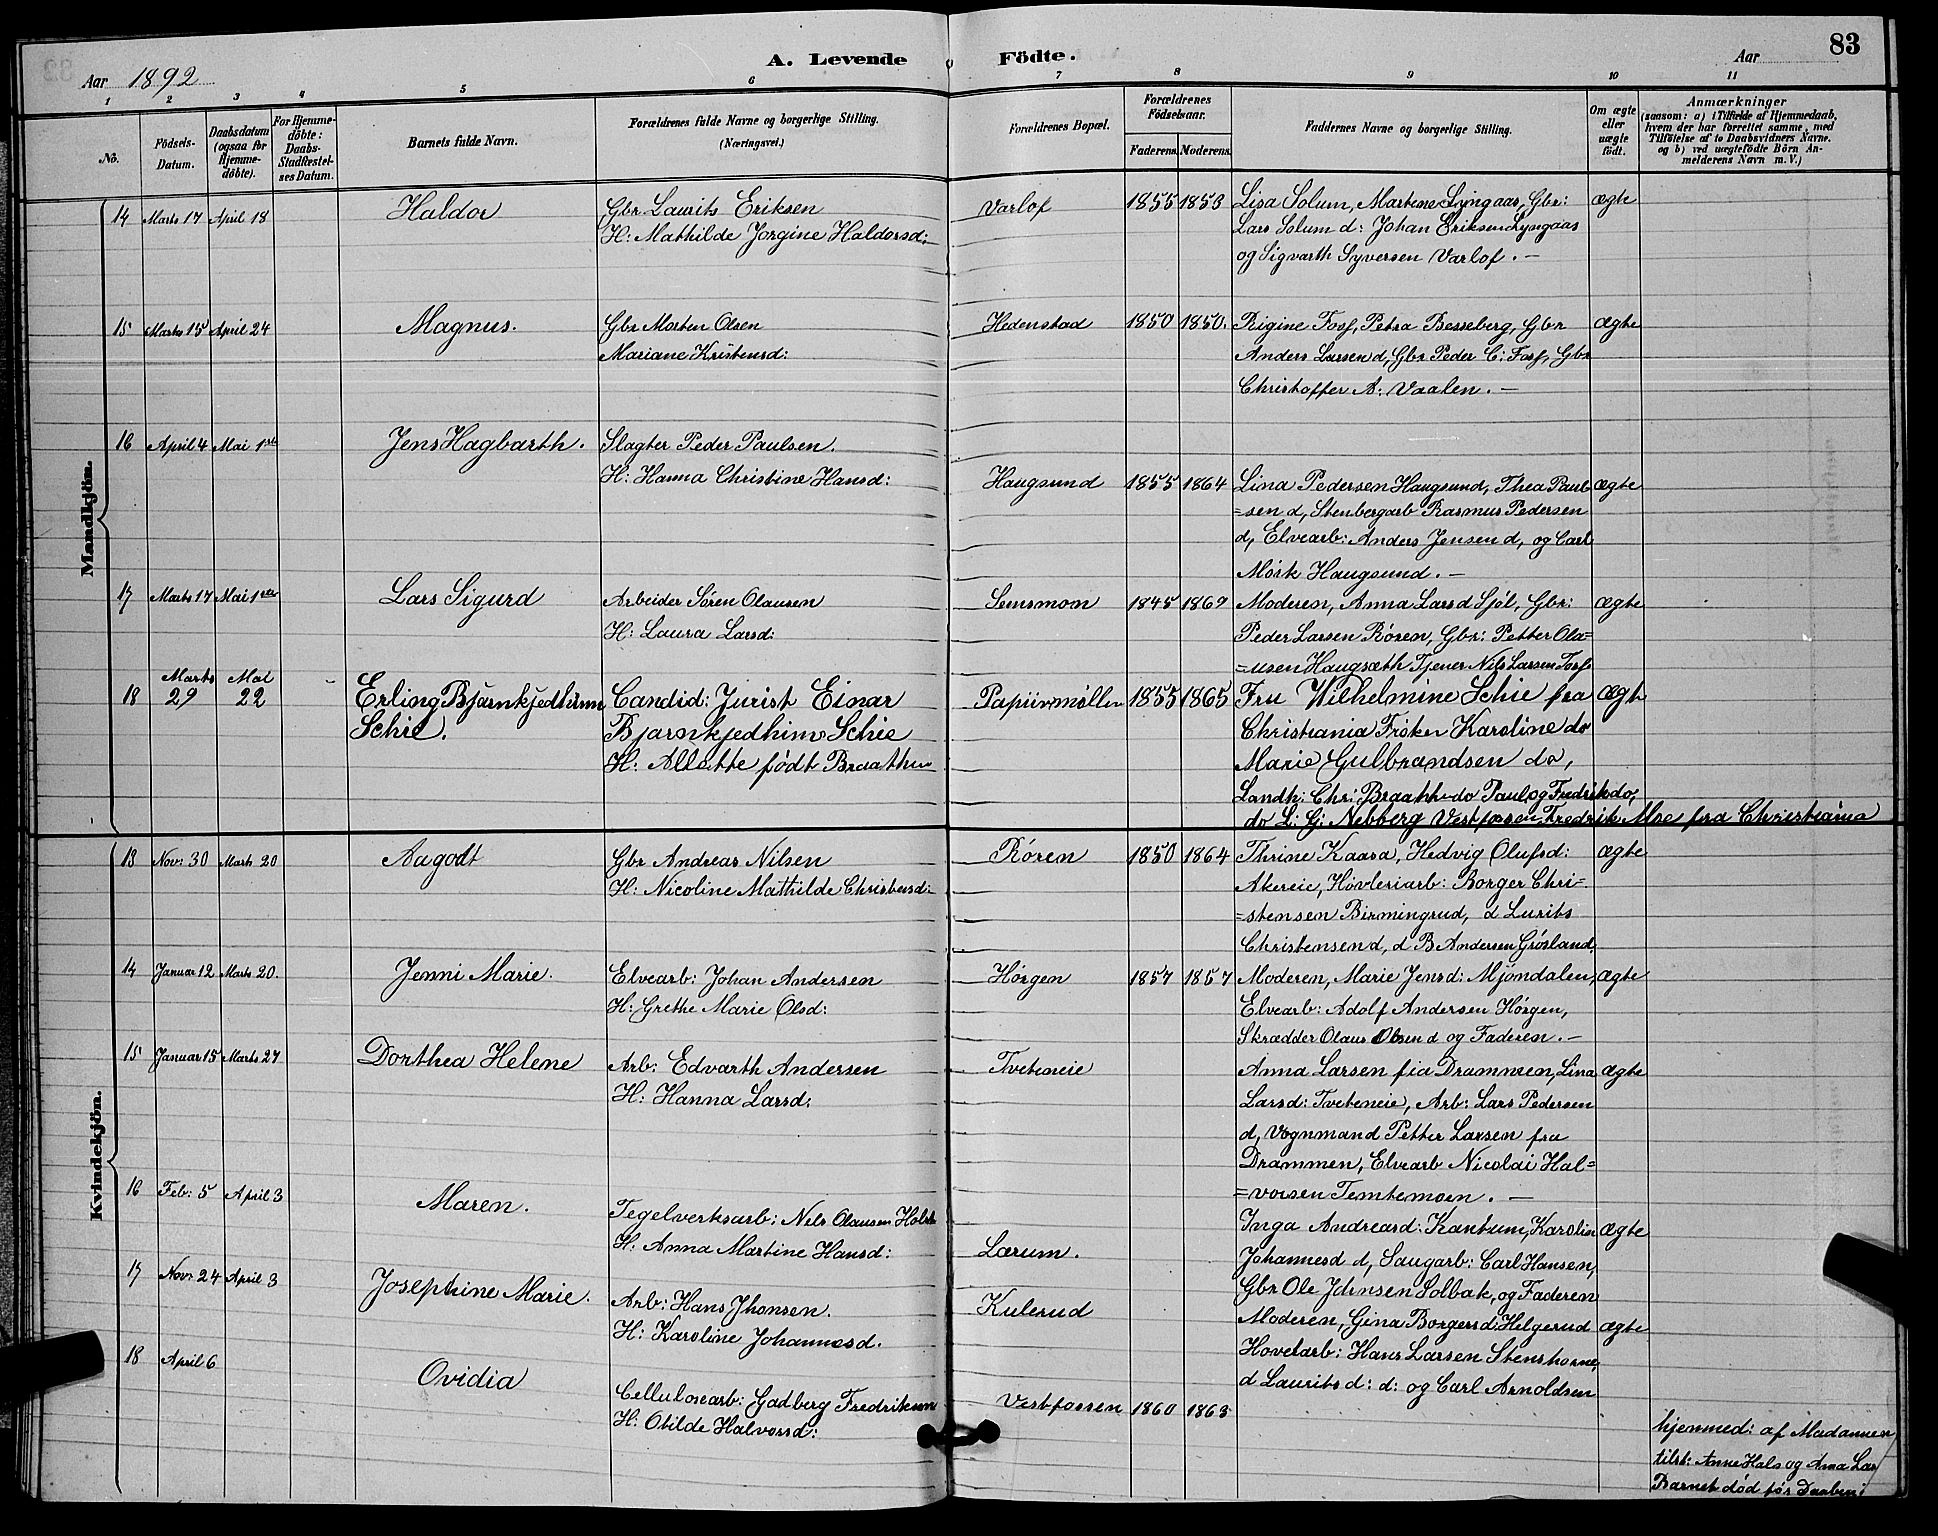 Aar 1892
A. Levende Födte.
Aar
83
1 2 3 4 5 6 7 8 9 10 11
No.
Födsels-Datum.
Daabsdatum (ogsaa for Hjemme-döbte).
For Hjemme-döbte: Daabs-Stadfæstel-ses Datum.
Barnets fulde Navn.
Forældrenes fulde Navne og borgerlige Stilling.
(Næringsvei.)
Forældrenes Bopæl.
Forældrenes Födselsaar.
Faderens. Moderens.
Faddernes Navne og borgerlige Stilling.
Om ægte eller uægte födt.
Anmærkninger
(saasom: a) i Tilfælde af Hjemmedaab,
hvem der har forrettet samme, med
Tilföielse af to Daabsvidners Navne.
og b) ved uægtefödte Börn An-
melderens Navn m. V.)
Mandkjön.
14 Marts 17 April 18 Haldor Gbr Laurits Eriksen Varlof 1855 1853 Lisa Solum, Martene Lyngaas, Gbr: ægte
H: Mathilde Jorgine Haldorsd: Lars Solum d: Johan Eriksen Lyngaas
og Sigvarth Syversen Varlof. –
15 Marts 15 April 24 Magnus. Gbr Morten Olsen Hedenstad 1850 1850. Rigine Fosf, Petra Besseberg, Gbr ægte
Mariane Kristensd: Anders Larsen d, Gbr Peder C: Fosf, Gbr
Christoffer A: Vaalen. –
16 April 4 Mai 1ste Jens Hagbarth. Slagter Peder Paulsen.
H: Hanna Christine Hansd: Haugsund 1855 1864 Lina Pedersen Haugsund, Thea Paul ægte
=sen d, Stenbergarb Rasmus Pedersen
d, Elvearb: Anders Jensen d, og Carl
Mörk Haugsund. –
17 Marts 17 Mai 1ste Lars Sigurd Arbeider Sören Olausen Semsmoen 1845 1869 Moderen, Anna Larsd Sjöl, Gbr: ægte
H: Laura Larsd: Peder Larsen Rören, Gbr: Petter Ola=
=usen Haugsæth Tjener Nils Larsen Fosf
18 Marts 29 Mai 22 Erling Bjarnkjedhinn Candid: Jurist Einar Papiirmöllen 1855 1865 Fru Wilhelmine Schie fra ægte
Schie. Bjarnkjedhinn Schie Christiania Fröken Karoline do
H: Allette födt Braathen Marie Gulbrandsen do,
Landh: Chr: Braathe do Paul og Fredrik do,
do L: G: Nebberg Vestfossen Fredrik Moe fra Christiania
Kvindekjön.
13 Nov: 30 Marts 20 Aagodt Gbr Andreas Nilsen Rören 1850 1864 Thrine Kaasa, Hedvig Olufsd: ægte
H: Nicoline Mathilde Christensd: Akereie, Hövleriarb: Borger Chri=
=stensen Birmingrud, d Lurits
Christensen d, d B Andersen Grösland.
14 Januar 12 Marts 20. Jenni Marie. Elvearb: Johan Andersen Hörgen 1857 1857 Moderen, Marie Jensd: Mjöndalen, ægte
H: Grethe Marie Olsd: Elvearb: Adolf Andersen Hörgen,
Skrædder Olaus Olsen d og Faderen. –
15 Januar 15 Marts 27 Dorthea Helene Arb: Edvarth Andersen Tveteneie Anna Larsen fra Drammen, Lina ægte
H: Hanna Larsd: Larsd: Tveteneie, Arb: Lars Pedersen
d, Vognmand Petter Larsen fra
Drammen, Elvearb Nicolai Hal=
=vorsen Temtemoen. –
16 Feb: 5 April 3 Maren. Tegelverksarb: Nels Olausen Inga Andreasd: Kantum, Karolin ægte
H: Anna Martine Hansd: Lærum. Johannesd d, Saugarb: Carl Hansen,
Gbr Ole Johnsen Solbak, og Faderen
17 Novr 24 April 3 Josephine Marie. Arb: Hans Jhonsen. Kulerud Moderen, Gina Borgersd: Helgerud ægte
H: Karoline Johannesd. Hovelarb: Hans Larsen Stenshorne,
d Laurits d: d: og Carl Arnoldsen
18 April 6 Ovidia Cellulosearb: Gadberg Fredriksen Vestfossen 1860 1863
H: Otilde Halvorsd: hjemmed: af Madammen
tilst: Anne Hals og Anna Lar
Barnet död för Daaben: